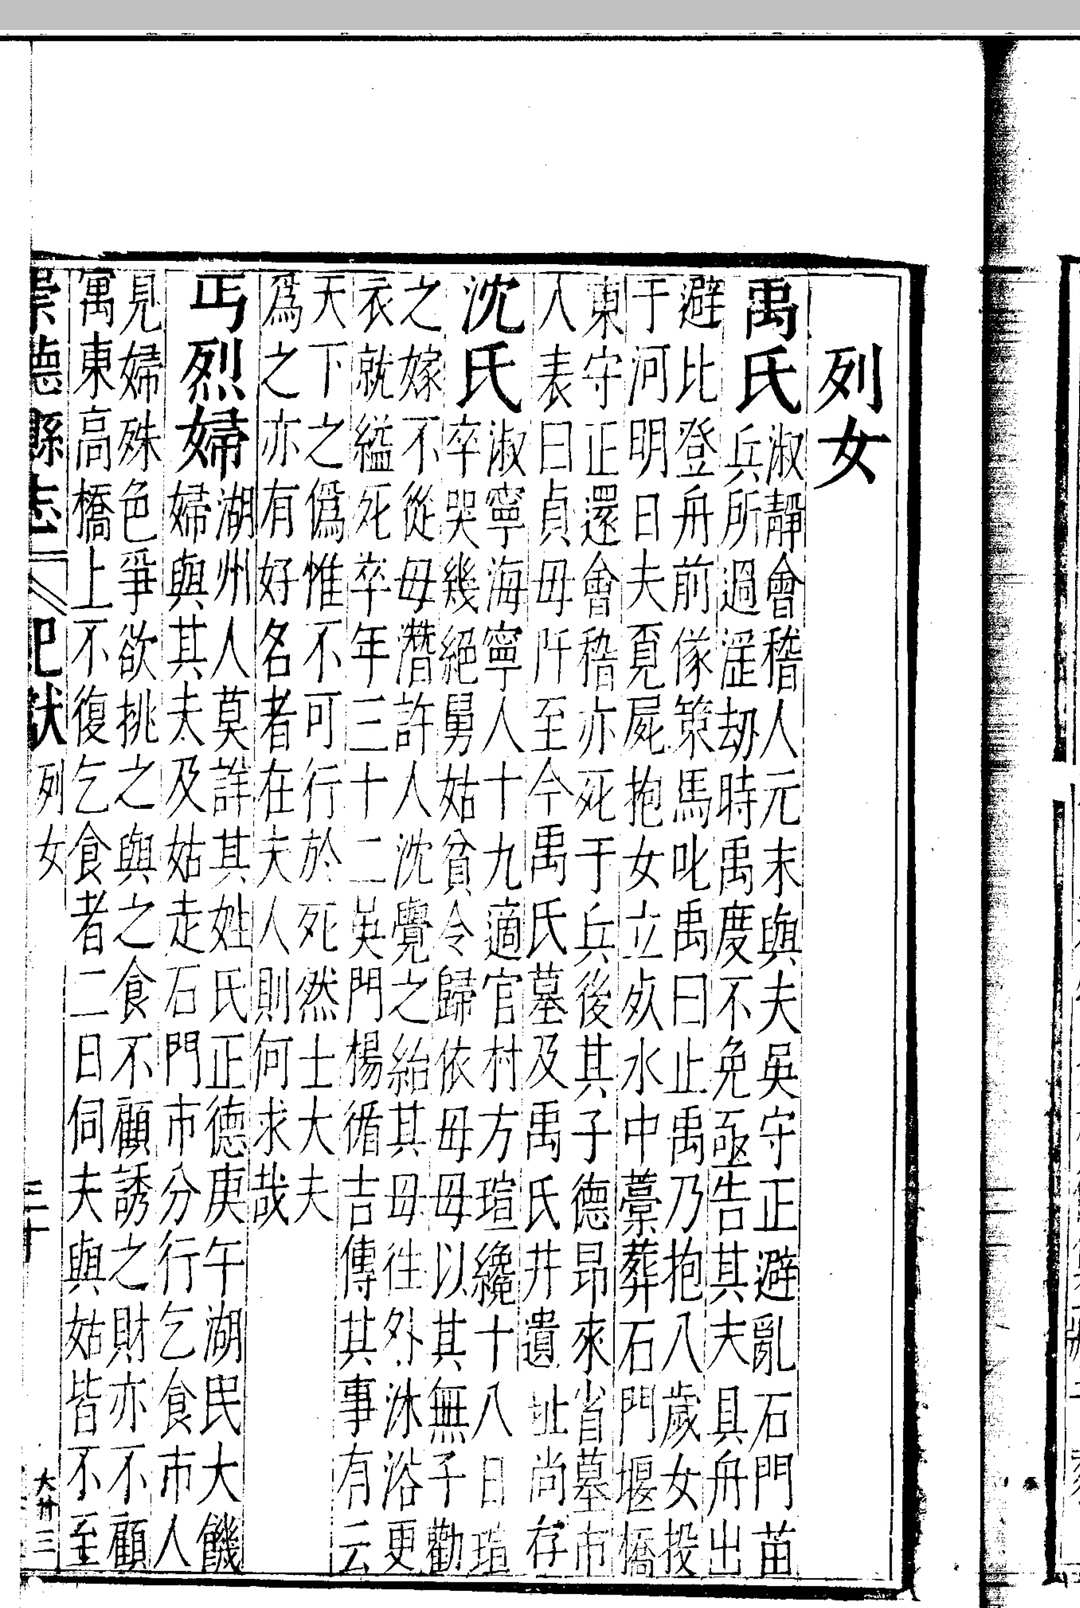 列女
禹氏
淑靜會稽人元末與夫吳守正避亂石門苗
兵所過淫劫時禹度不免亟告其夫具舟出
避比登舟前傢策馬叱禹曰止禹乃抱八歲女投
于河明日夫覓屍抱女立於水中藁葬石門堰橋
東守正還會稽亦死于兵後其子德昂來省墓市
人表曰貞毋阡至今禹氏墓及禹氏井遺址尚存
沈氏
淑寧海寧人十九適官村方瑄纔十八日瑄
卒哭幾絕舅姑貧令歸依毋毋以其無子勸
之嫁不從毋潛許人沈覺之紿其毋往外沐浴更
衣就縊死卒年三十二吳門楊循吉傳其事有云
天下之偽惟不可行於死然士大夫
爲之亦有好名者在夫人則何求哉
丐烈婦
湖州人莫詳其姓氏正德庚午湖民大饑
婦與其夫及姑走石門市分行乞食市人
見婦殊色爭欲挑之與之食不顧誘之財亦不顧
寓東高橋上不復乞食者二日伺夫與姑皆不至
崇德縣志 紀獻 列女 三十 大卅三